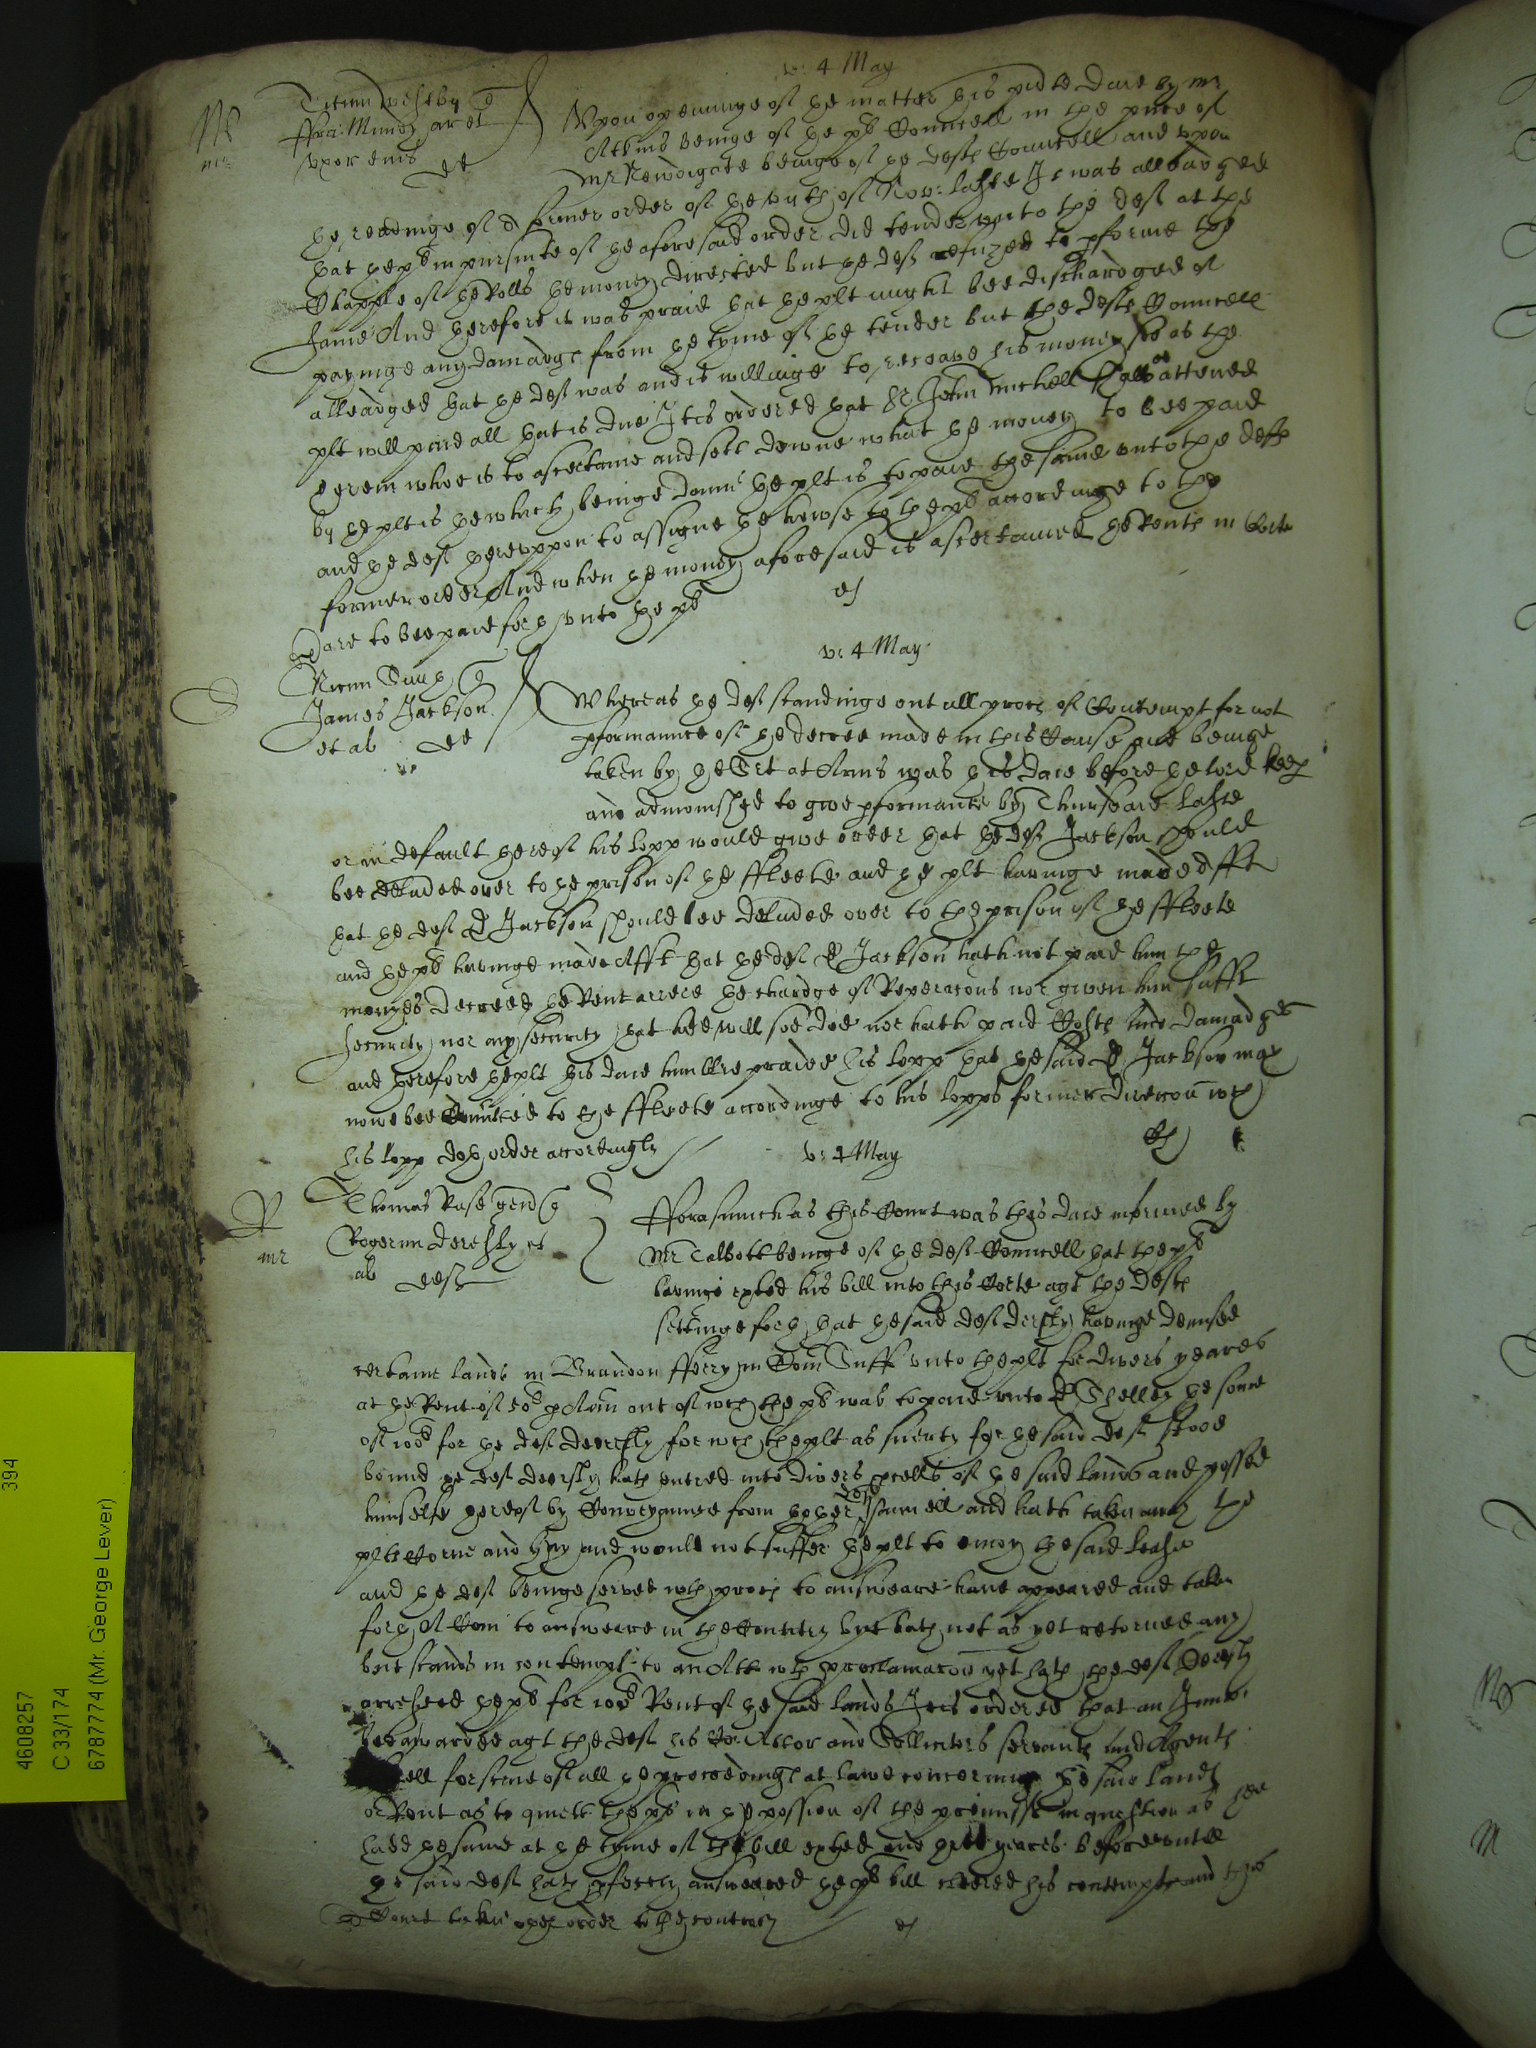 v: 4 May
W
Upon openinge of the matter this pnte daie by mr
Atkins beinge of the pls Councell in the pnce of
mr Newdigate beinge of the defts Councell and upon
the readinge of a former order of the of Nov: laste It was alleadged
that the pl in pursuite of the aforesaid order did tender unto the deft at the
Chapple of the Rolls the money directed but the deft refuzed to pforme the
same And therefore it was praid that the plt might bee dischardged of
payinge any damadge from the tyme of the tender but the defts Councell
alleadged that the deft was and is willinge to receave his money soe as the
plt will paie all that is due It is ordered that Sr John Michell shalbe attened
herein whoe is to ascertaine and sett downe what the money to bee paid
by the plt is the which beinge donne the plt is to paie the same unto the deft
and the deft thereuppon to assigne the howse to the pl accordinge to the
former order And when the money aforesaid is ascertained the Rents in Corte
are to bee paid forth unto the pl
v: 4 May
James Jackson
et al de
Whereas the deft standinge out all proces of Contempt for not
pformannce of the decree made in this Cause and beinge
taken by the Srt at Arms was this daie before the lord keep
and admonished to give pformance by Thursdaie laste
or in default thereof his lopp would give order that the deft Jackson should
bee deliuded over to the prison of the ffleete and the plt havinge made afft
that the deft Jackson should bee deliuded over to the prison of the ffleete
and the pl havinge made Afft that the deft Jackson hath not paid him the
monyes decreed the Rent arrere the chardge of Reperacons nor given him sufft
security nor any security that hee will soe doe nor hath paid Costs and damadges
and therefore the plt this daie humblie praied his lopp that the said Jackson may
nowe bee Comitted to the ffleete accordinge to his lopps former direccon wch
his lopp doth order accordingly
v: 4 May
Thomas gend
mr
Rogerum Deersly et
al defts
Fforasmuch as this Court was this daie informed by
Mr Talbott beinge of the defts Councell that the pl
havinge exhted his bill into this Corte agt the defts
settinge forth that the said deft Dersly havinge demised
certaine lands in Brandon fferry in Com Suff unto the plt for divers yeares
at the Rent of 50l p Ann out of wch the pl was to paie unto Shelley the some
of 100l for the deft Deersly for wch the plt as suerty for the said deft stood
bound the deft Deersly hath entred into divers pcells of the said lands and possed
himselfe thereof by Conveyannce from the other deft and hath taken away the
plts Corne and hay and would not suffer the plt to enioy the said lease
and the deft beinge served wth proces to answeare have appeared and taken
forth A Com to answeare in the Countrey but hath not as yet retorned any
but stands in contempt to an Att wth proclamacon yet hath the deft Deersly
arrested the pl for 100l Rent of the said lands It is ordered that an Iniun
bee awarded agt the deft his Attor and Sollicitors servants and Agents
well for staie of all the proceedings at lawe concerninge the said lands
or Rent as to quiett the pl in the possion of the premisses in question as hee
hadd the same at the tyme of the bill exhted and yeares before untill
the said deft hath pfectly answeared the pls bill cleered his contempte and this
Court take other order to the contrary
4608257
394
C 33/174
6787774 (Mr. George Lever)